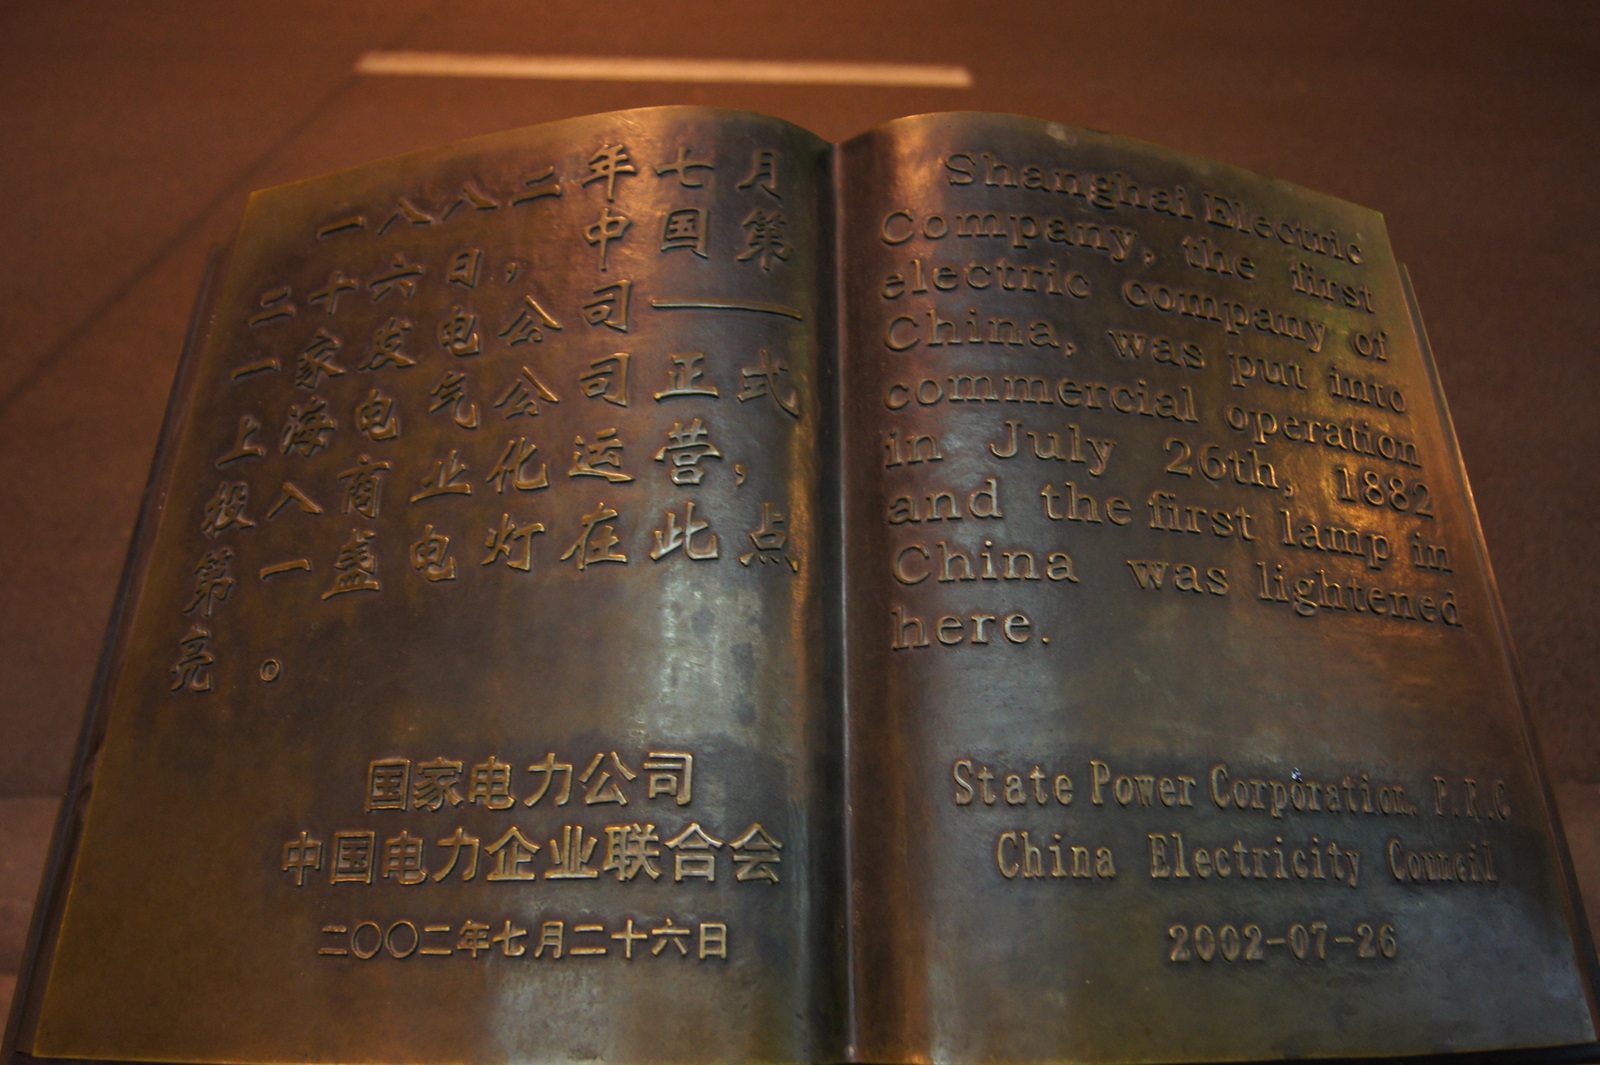 一八八二年七月
二十六日，中国第
一家发电公司——
上海电气公司正式
投入商业化运营，
第一盏电灯在此点
亮。
国家电力公司
中国电力企业联合会
二〇〇二年七月二十六日
Shanghai Electric
Company, the first
electric company of
China, was put into
commercial operation
in July 26th, 1882
and the first lamp in
China was lightened
here.
State Power Corporation, P.R.C
China Electricity Council
2002-07-26